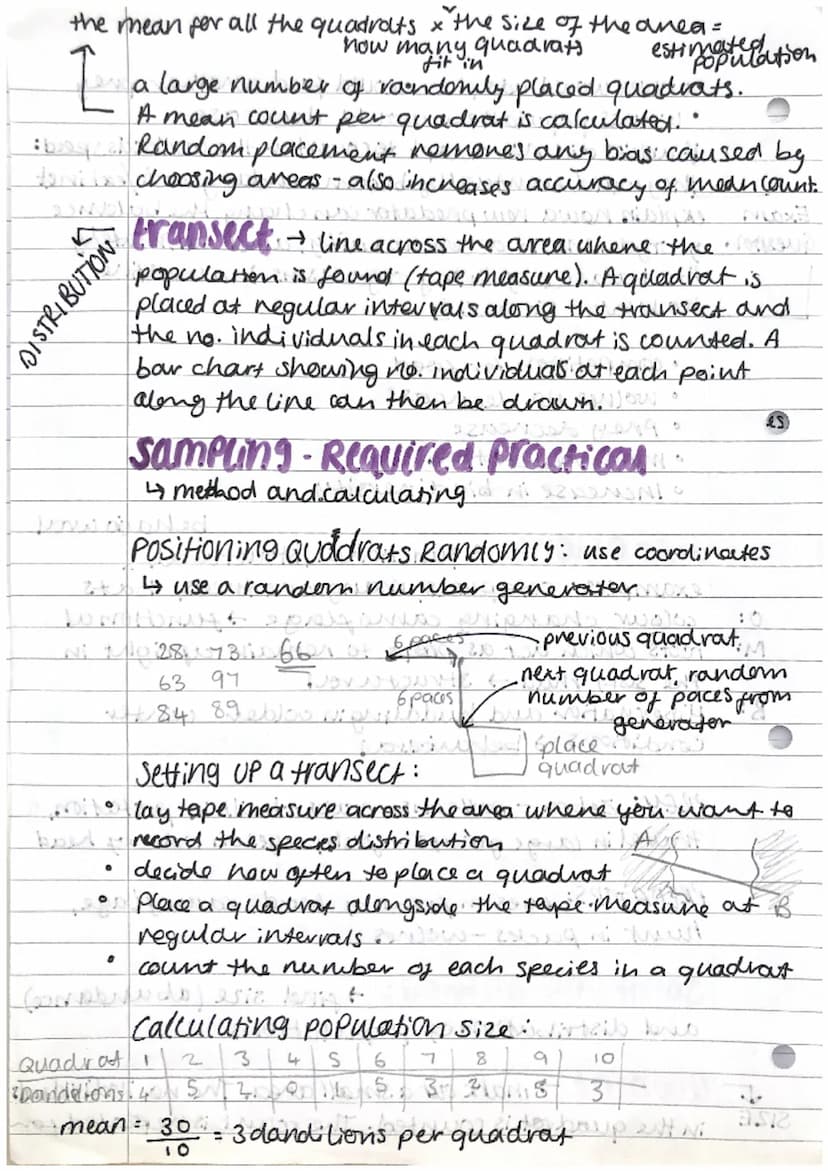 the mean for all the quadrats × the size of the area =
how many quadrats fit in
estimated population
a large number of randomly placed quadrats.
A mean count per quadrat is calculated.
Random placement removes any bias caused by
choosing areas - also increases accuracy of mean count.
DISTRIBUTION
transect → line across the area where the
population is found (tape measure). A quadrat is
placed at regular intervals along the transect and
the no. individuals in each quadrat is counted. A
bar chart showing no. individuals at each point
along the line can then be drawn.
Sampling - Required Practical
↳ method and calculating
Positioning Quadrats Randomly: use coordinates
↳ use a random number generator
28 73 66
63 97
84 89
6 paces
previous quadrat.
6 paces
next quadrat, random
number of paces from
generator
place
quadrat
Setting up a transect:
• lay tape measure across the area where you want to
record the species distribution
A
• decide how often to place a quadrat
• Place a quadrat alongside the tape measure at
B
regular intervals
• count the number of each species in a quadrat
Calculating population size:
Quadrat 1 2 3 4 5 6 7 8 9 10
Dandilions 4 5 2 0 1 5 3 3
mean = 30/10 = 3 dandilions per quadrat